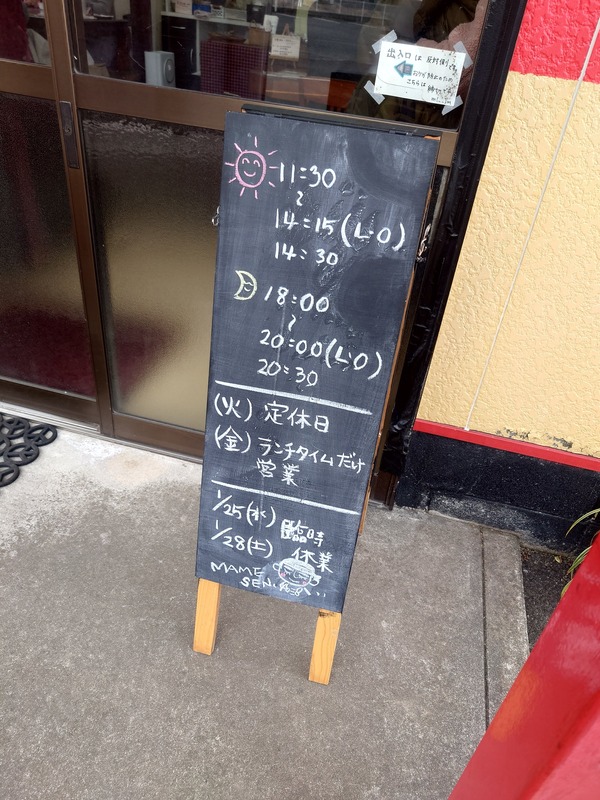 出入口は反対側です。
こちらは
11:30
〜
14:15(L・O)
14:30
18:00
〜
20:00(L・O)
20:30
(火) 定休日
(金) ランチタイムだけ
営業
1/25(水) 臨時
1/28(土) 休業
MAME
SEN.